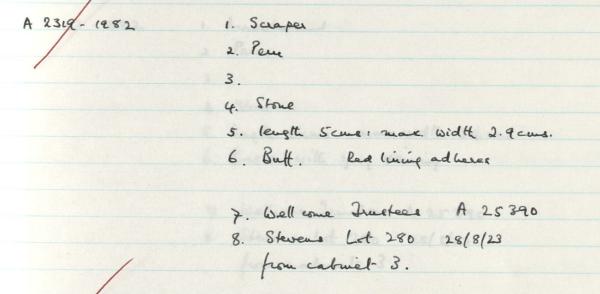 A 2319-1982 1. Scraper
2. Peru
3.
4. Stone
5. length 5cms: max width 2.9cms.
6. Buff. Red lining adheres
7. Wellcome Trustees A 25390
8. Stevens Lot 280 28/8/23
from cabinet 3.